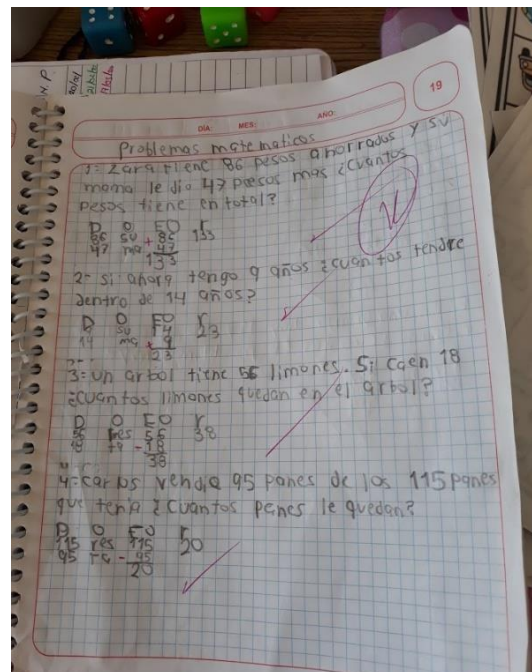 N.P.
19
DIA: MES: AÑO:
Problemas matematicos
1= Zara tiene 86 pesos ahorrados y su
mama le dio 47 pesos mas ¿Cuantos
pesos tiene en total?
D O EO r
86 su + 86 133
47 ma 47
133
2- si ahora tengo 9 años ¿cuantos tendre
dentro de 14 años?
D O EO r
su 14 23
14 ma + 9
23
3= un arbol tiene 56 limones. Si caen 18
¿cuantos limones quedan en el arbol?
D O EO r
56 res 56 38
18 ta - 18
38
4= carlos vendio 95 panes de los 115 panes
que tenia ¿cuantos panes le quedan?
D O EO r
115 res 115 20
95 ta - 95
20